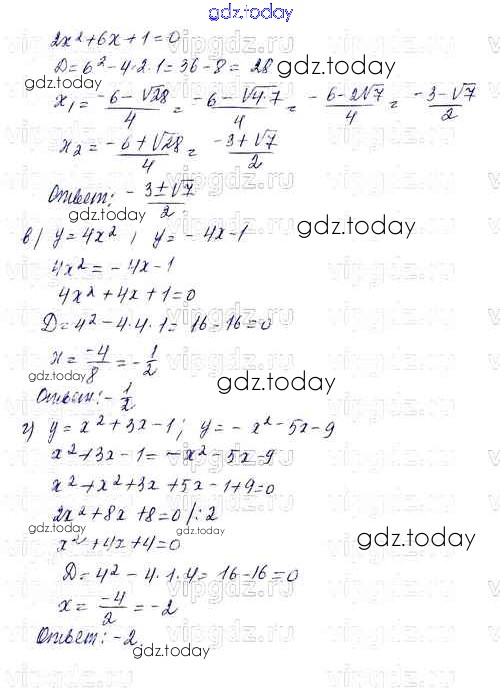 gdz.today
2x²+6x+1=0
D=6²-4·2·1=36-8=28
gdz.today
x₁=(-6-√28)/4=(-6-√4·7)/4=(-6-2√7)/4=(-3-√7)/2
x₂=(-6+√28)/4=(-3+√7)/2
Ответ: (-3±√7)/2
gdz.today
в) y=4x², y=-4x-1
gdz.today
4x²=-4x-1
4x²+4x+1=0
D=4²-4·4·1=16-16=0
x=-4/8=-1/2
gdz.today
gdz.today
Ответ: -1/2
г) y=x²+3x-1; y=-x²-5x-9
x²+3x-1=-x²-5x-9
x²+x²+3x+5x-1+9=0
2x²+8x+8=0/:2
gdz.today
x²+4x+4=0
gdz.today
D=4²-4·1·4=16-16=0
x=-4/2=-2
Ответ: -2
gdz.today
vipgdz.ru